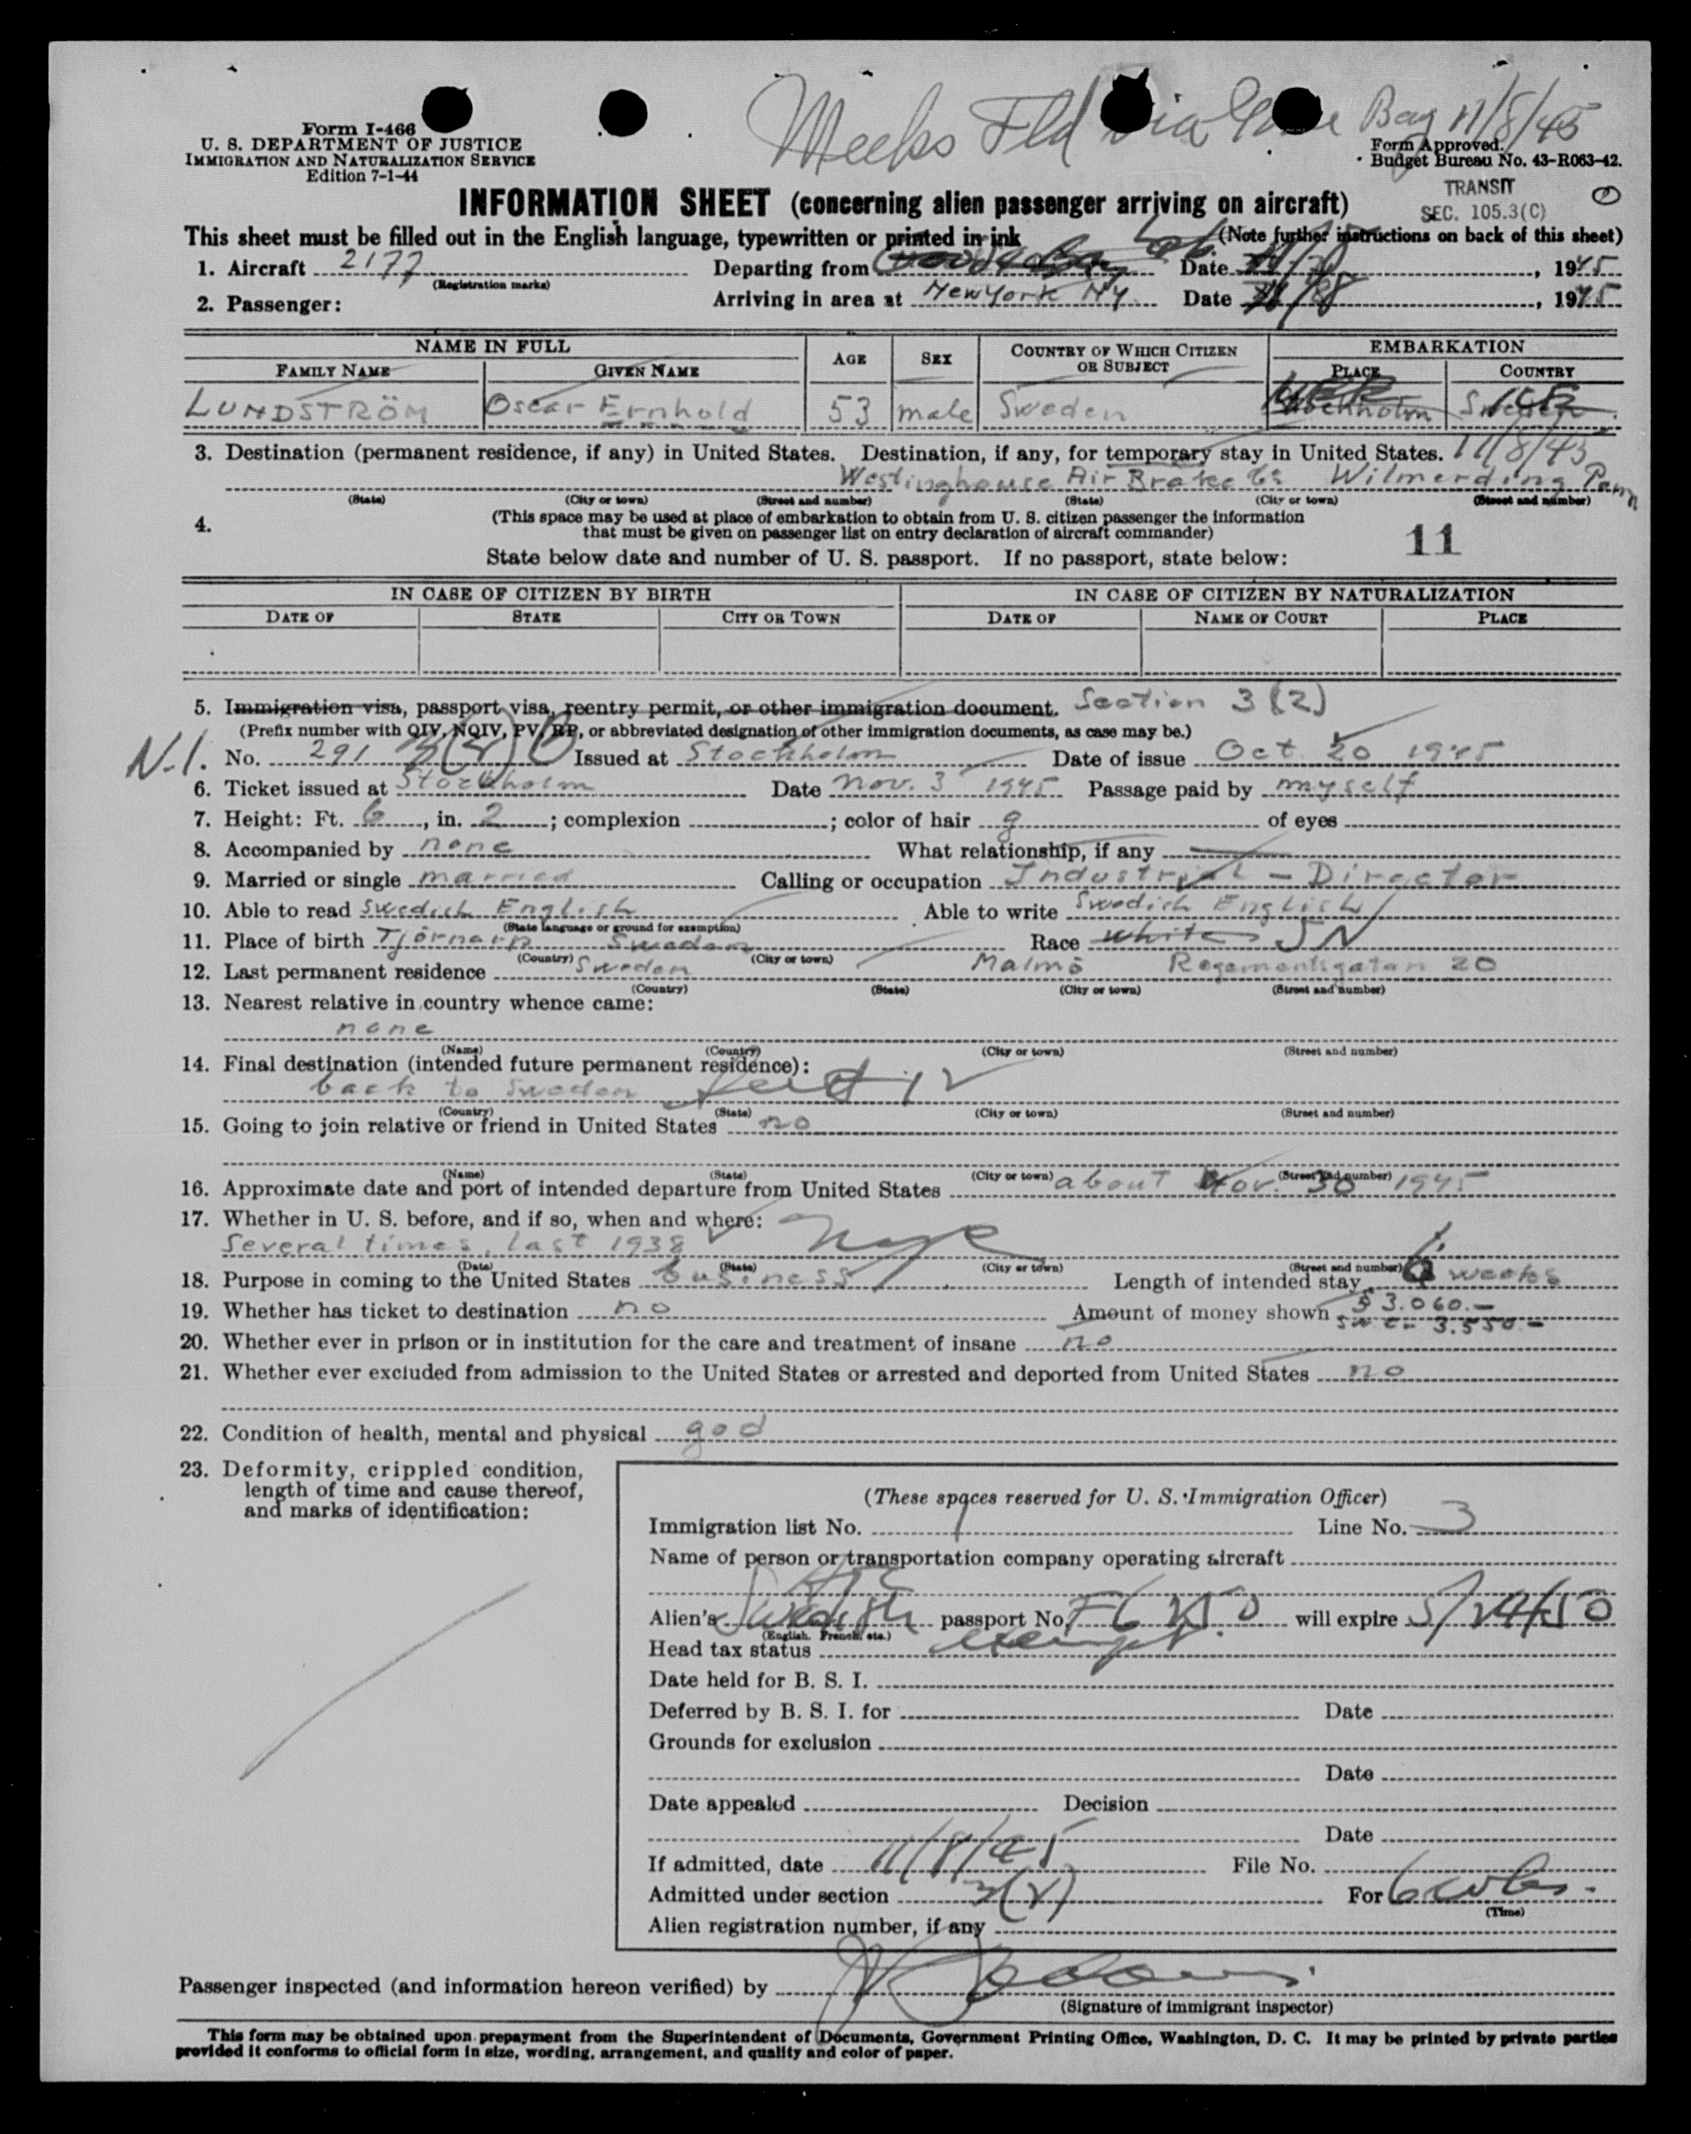 Meeks Fld via Goose Bay 11/8/45
Form I-466
U. S. DEPARTMENT OF JUSTICE
IMMIGRATION AND NATURALIZATION SERVICE
Edition 7-1-44
Form Approved.
Budget Bureau No. 43-R063-42.
TRANSIT
SEC. 105.3(C)
INFORMATION SHEET (concerning alien passenger arriving on aircraft)
This sheet must be filled out in the English language, typewritten or printed in ink (Note further instructions on back of this sheet)
1. Aircraft 2177 Departing from Goose Bay Lab. Date , 1945
(Registration marks)
2. Passenger: Arriving in area at New York NY. Date , 1945
NAME IN FULL AGE SEX COUNTRY OF WHICH CITIZEN OR SUBJECT EMBARKATION
FAMILY NAME GIVEN NAME PLACE COUNTRY
LUNDSTRÖM Oscar Ernhold 53 male Sweden Stockholm Sweden
11/8/45
3. Destination (permanent residence, if any) in United States. Destination, if any, for temporary stay in United States.
Westinghouse Air Brake Co Wilmerding Penn
(State) (City or town) (Street and number) (State) (City or town) (Street and number)
4. (This space may be used at place of embarkation to obtain from U. S. citizen passenger the information
that must be given on passenger list on entry declaration of aircraft commander)
11
State below date and number of U. S. passport. If no passport, state below:
IN CASE OF CITIZEN BY BIRTH IN CASE OF CITIZEN BY NATURALIZATION
DATE OF STATE CITY OR TOWN DATE OF NAME OF COURT PLACE
5. Immigration visa, passport visa, reentry permit, or other immigration document. Section 3(2)
(Prefix number with QIV, NQIV, PV, RP, or abbreviated designation of other immigration documents, as case may be.)
N.I. No. 291 3(2) Issued at Stockholm Date of issue Oct 20 1945
6. Ticket issued at Stockholm Date Nov. 3 1945 Passage paid by myself
7. Height: Ft. 6, in. 2; complexion ; color of hair g of eyes
8. Accompanied by none What relationship, if any
9. Married or single married Calling or occupation Industrial - Director
10. Able to read Swedish English Able to write Swedish English
(State language or ground for exemption)
11. Place of birth Tjörnarp Sweden Race white
(Country) (City or town)
12. Last permanent residence Sweden Malmö Regementsgatan 20
(Country) (State) (City or town) (Street and number)
13. Nearest relative in country whence came:
none
(Name) (Country) (City or town) (Street and number)
14. Final destination (intended future permanent residence):
back to Sweden
(Country) (State) (City or town) (Street and number)
15. Going to join relative or friend in United States no
(Name) (State) (City or town) (Street and number)
16. Approximate date and port of intended departure from United States about Nov. 30 1945
17. Whether in U. S. before, and if so, when and where:
Several times, last 1938
(Date) (State) (City or town) (Street and number)
18. Purpose in coming to the United States business Length of intended stay 6 weeks
19. Whether has ticket to destination no Amount of money shown $ 3.060.-
Sw cr 3.550.-
20. Whether ever in prison or in institution for the care and treatment of insane no
21. Whether ever excluded from admission to the United States or arrested and deported from United States no
22. Condition of health, mental and physical god
23. Deformity, crippled condition,
length of time and cause thereof,
and marks of identification:
(These spaces reserved for U. S. Immigration Officer)
Immigration list No. 1 Line No. 3
Name of person or transportation company operating aircraft
Alien's Swedish passport No. will expire 5/24/50
(English, French, etc.)
Head tax status exempt
Date held for B. S. I.
Deferred by B. S. I. for Date
Grounds for exclusion
Date
Date appealed Decision
Date
If admitted, date 11/8/45 File No.
Admitted under section 3(2) For 6 wks.
(Time)
Alien registration number, if any
Passenger inspected (and information hereon verified) by
(Signature of immigrant inspector)
This form may be obtained upon prepayment from the Superintendent of Documents, Government Printing Office, Washington, D. C. It may be printed by private parties
provided it conforms to official form in size, wording, arrangement, and quality and color of paper.